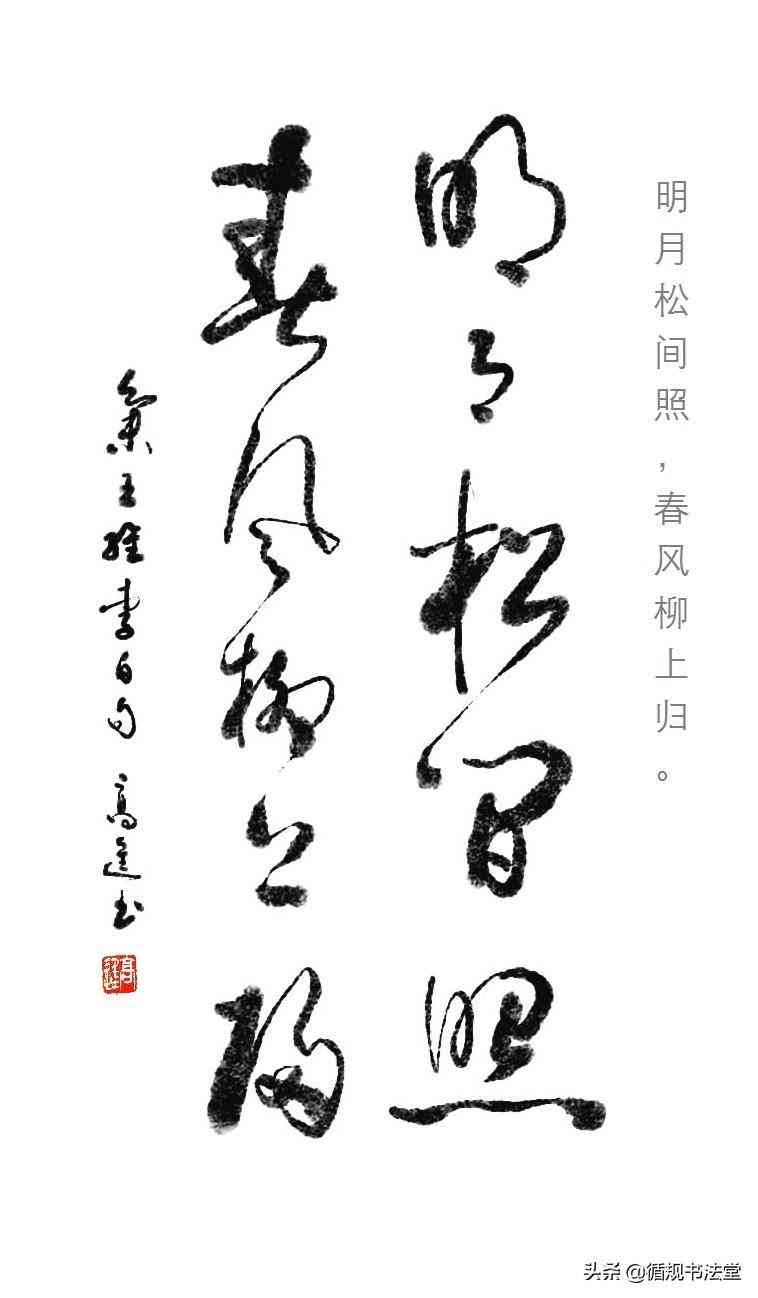 明月松间照，春风柳上归。
明月松间照
春风柳上归
集王维李白句 高进书
头条 @循规书法堂